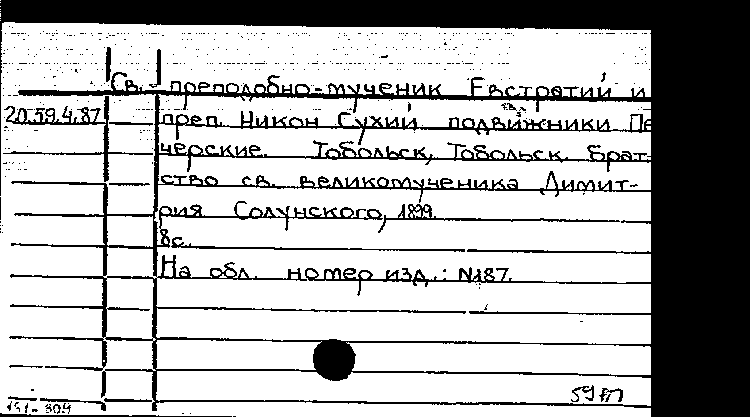 Св. преподобно-мученик Евстратий и
20.59.4.87 преп. Никон Сухий подвижники Пе
черские. Тобольск, Тобольск. Брат-
ство св. великомученика Димит-
рия Солунского, 1899.
8с.
На обл. номер изд.: N187.